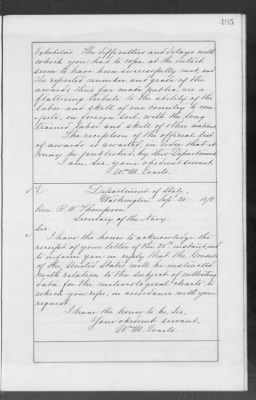 495
Exhibition. The difficulties and delays with
which you had to cope at the outset
seem to have been successfully met, and
the reported number and grade of the
awards thus far made public are a
flattering tribute to the ability of the
labor and skill of our country to com-
pete, on foreign soil, with the long
trained labor and skill of other nations.
The reception of the official list
of awards is awaited, in order that it
may be published by this Department.
I am, Sir, your obedient servant,
Wm. M. Evarts.
Department of State,
Washington Sept. 1878
Hon. R. W. Thompson,
Secretary of the Navy.
Sir:
I have the honor to acknowledge the
receipt of your letter of the instant, and
to inform you in reply that the Consuls
of the United States will be instructed
with relation to the subject of collecting
data for the meteorological charts to
which you refer, in accordance with your
request.
I have the honor to be, Sir,
Your obedient servant,
Wm. M. Evarts